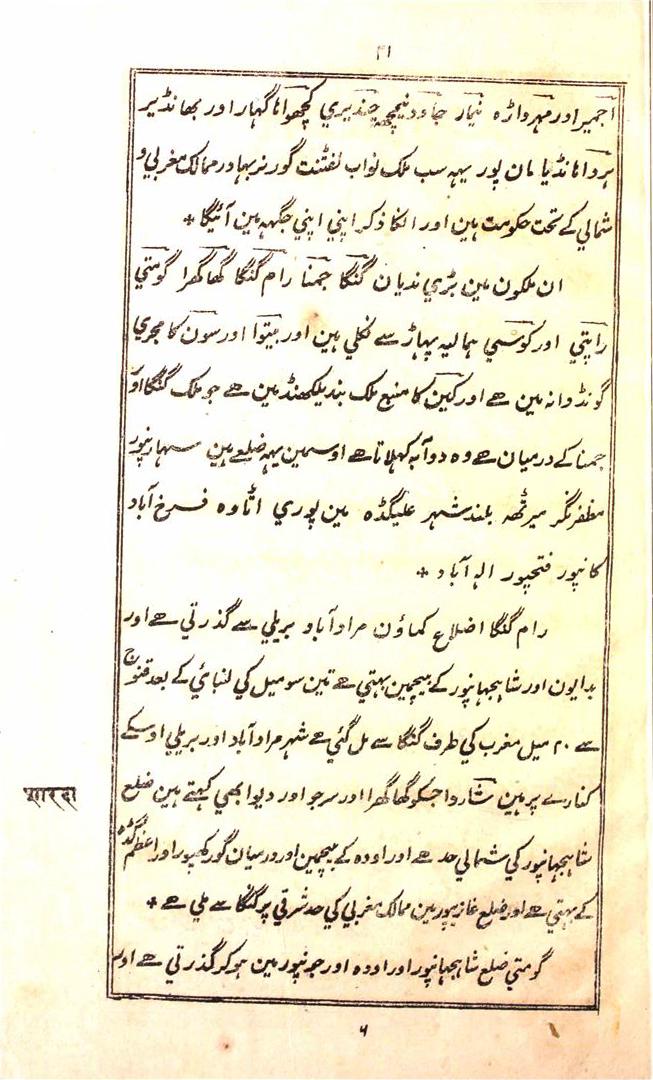 ۴۱
اجمیر اور مہرواڑہ نیمار جاود نیمچھ چندیری کچھوا ناگہار اور بھانڈیر
ہردا مانڈیا مان پور یہہ سب ملک نواب لفٹنٹ گورنر بہادر ممالک مغربی و
شمالی کے تحت حکومت ہین اور انکا ذکر اپنی اپنی جگہہ مین آئیگا +
ان ملکون مین بڑی ندیان گنگا جمنا رام گنگا گھاگھرا گومتی
راپتی اور کوسی ہمالیہ پہاڑ سے نکلی ہین اور بیتوا اور سون کا مجری
گونڈوانہ مین ہے اور کین کا منبع ملک بندیلکھنڈ مین ہے جو ملک گنگا اور
جمنا کے درمیان ہے وہ دوآبہ کہلاتا ہے اوسمین یہہ ضلعے ہین سہارنپور
مظفر نگر میرٹھہ بلند شہر علیگڈہ مین پوری اٹاوہ فرخ آباد
کانپور فتحپور الہ آباد +
رام گنگا اضلاع کماؤن مرادآباد بریلی سے گذرتی ہے اور
بدایون اور شاہجہانپور کے بیچمین بہتی ہے تین سو میل کی لنبائی کے بعد قنوج
سے ۲۰ میل مغرب کی طرف گنگا سے مل گئی ہے شہر مرادآباد اور بریلی اوسکے
کنارے پر ہین شاردا جسکو گھاگھرا اور سرجو اور دیوا بھی کہتے ہین ضلع
شاہجہانپور کی شمالی حد ہے اور اودہ کے بیچمین اور درمیان گورکھپور اور اعظم گڈہ
کے بہتی ہے اور ضلع غازیپور مین ممالک مغربی کی حد شرقی پر گنگا سے ملی ہے +
گومتی ضلع شاہجہانپور اور اودہ اور جونپور مین ہوکر گذرتی ہے اور
शारदा
۶